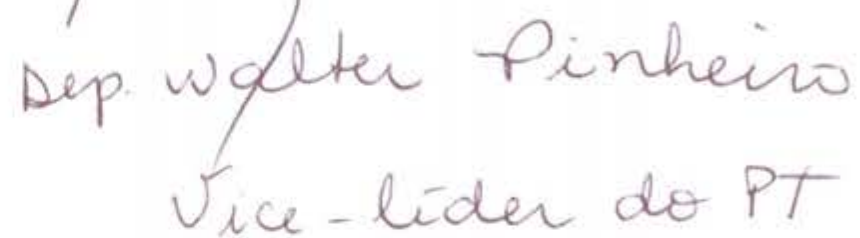 Dep. Walter Pinheiro
Vice-líder do PT